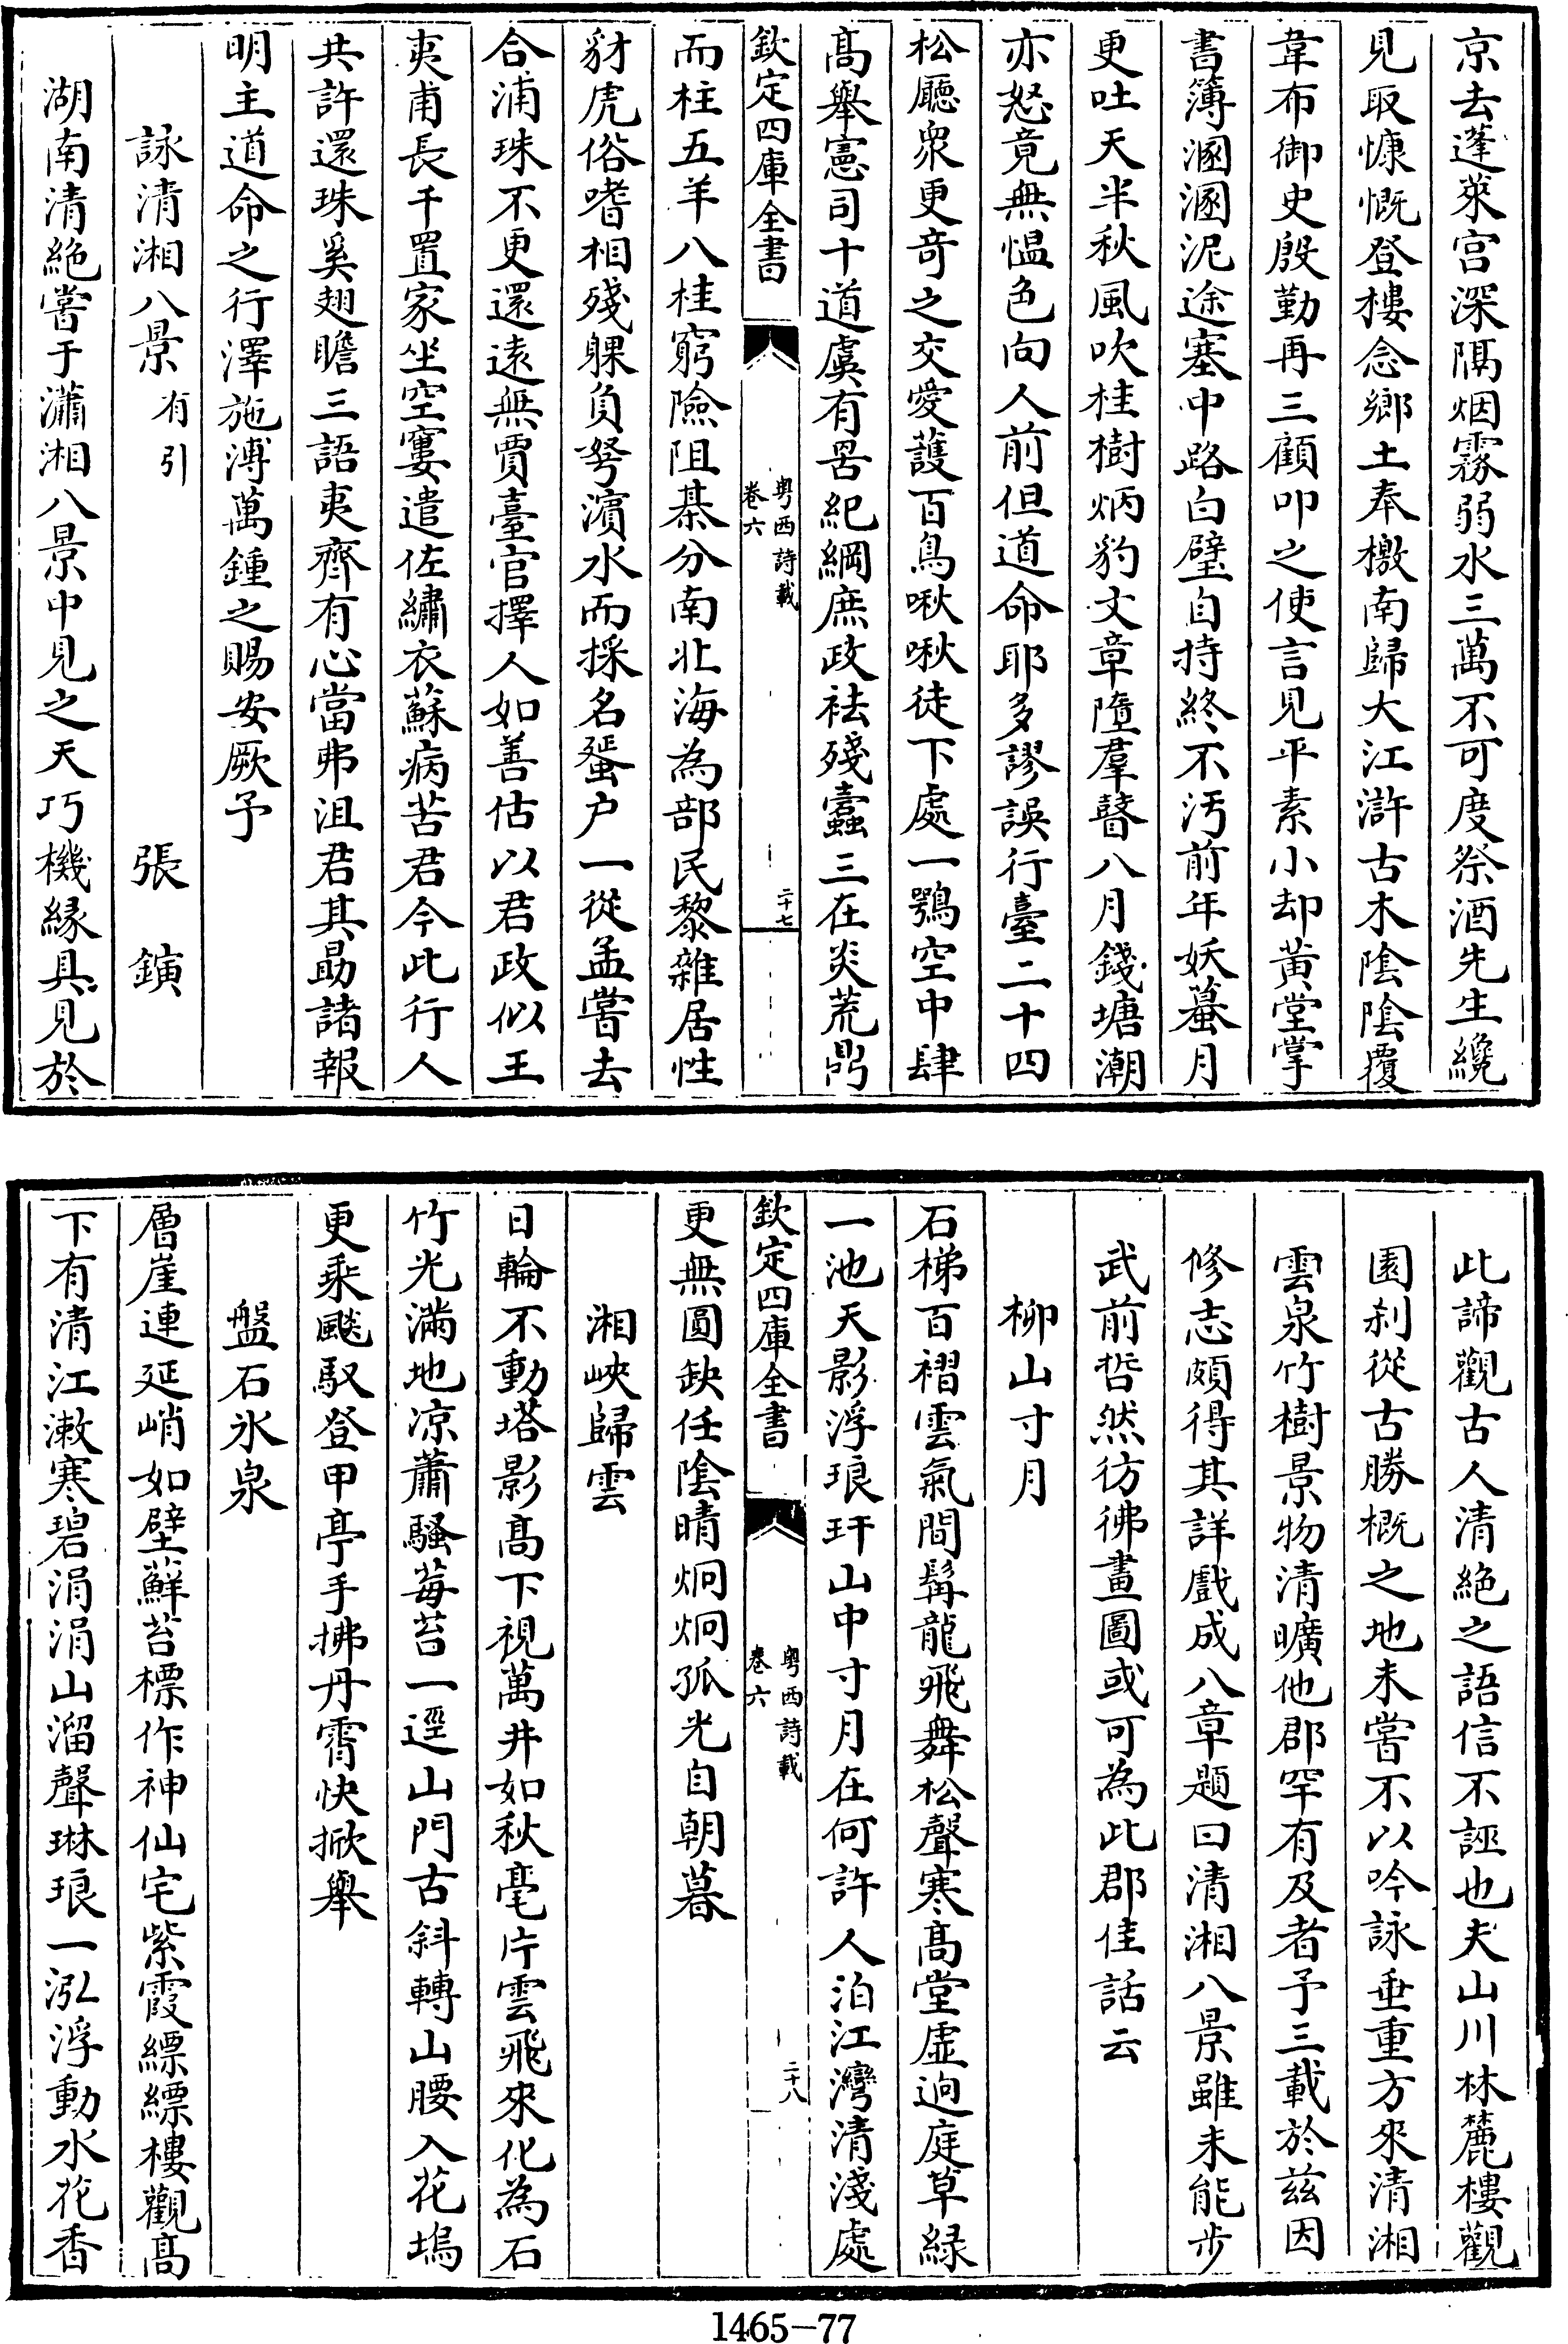 京去蓬萊宫深隔烟霧弱水三萬不可度祭酒先生纔
見取慷慨登樓念鄉土奉檄南歸大江滸古木陰陰覆
韋布御史殷勤再三顧叩之使言見平素小却黄堂掌
書簿溷溷泥途塞中路白璧自持終不汚前年妖蟇月
更吐天半秋風吹桂樹炳豹文章墮羣瞽八月錢塘潮
亦怒竟無愠色向人前但道命耶多謬誤行臺二十四
松廳衆更竒之交愛護百鳥啾啾徒下處一鶚空中肆
髙舉憲司十道虞有罟紀綱庶政袪殘蠧三在炎荒鼎
欽定四庫全書
粤西詩載
卷六
二十七
而柱五羊八桂窮險阻棊分南北海為部民黎雜居性
豺虎俗嗜相殘躶負弩濵水而採名蜑户一從孟嘗去
合浦珠不更還遠無賈臺官擇人如善估以君政似王
夷甫長千置家坐空窶遣佐繡衣蘇病苦君今此行人
共許還珠奚翅瞻三語夷齊有心當弗沮君其勗諸報
明主道命之行澤施溥萬鍾之賜安厥予
詠清湘八景有引
張鐄
湖南清絶嘗于瀟湘八景中見之天巧機縁具見於
此諦觀古人清絶之語信不誣也夫山川林麓樓觀
園刹從古勝概之地未嘗不以吟詠垂重方來清湘
雲泉竹樹景物清曠他郡罕有及者予三載於兹因
修志頗得其詳戲成八章題曰清湘八景雖未能步
武前哲然彷彿畫圖或可為此郡佳話云
柳山寸月
石梯百褶雲氣間髯龍飛舞松聲寒髙堂虚逈庭草緑
一池天影浮琅玕山中寸月在何許人泊江灣清淺處
欽定四庫全書
粤西詩載
卷六
二十八
更無圓缺任陰晴炯炯孤光自朝暮
湘峽歸雲
日輪不動塔影髙下視萬井如秋毫片雲飛來化為石
竹光滿地凉蕭騷莓苔一逕山門古斜轉山腰入花塢
更乘飈馭登甲亭手拂丹霄快掀舉
盤石氷泉
層崖連延峭如壁蘚苔標作神仙宅紫霞縹緲樓觀髙
下有清江漱寒碧涓涓山溜聲琳琅一泓浮動水花香
1465-77